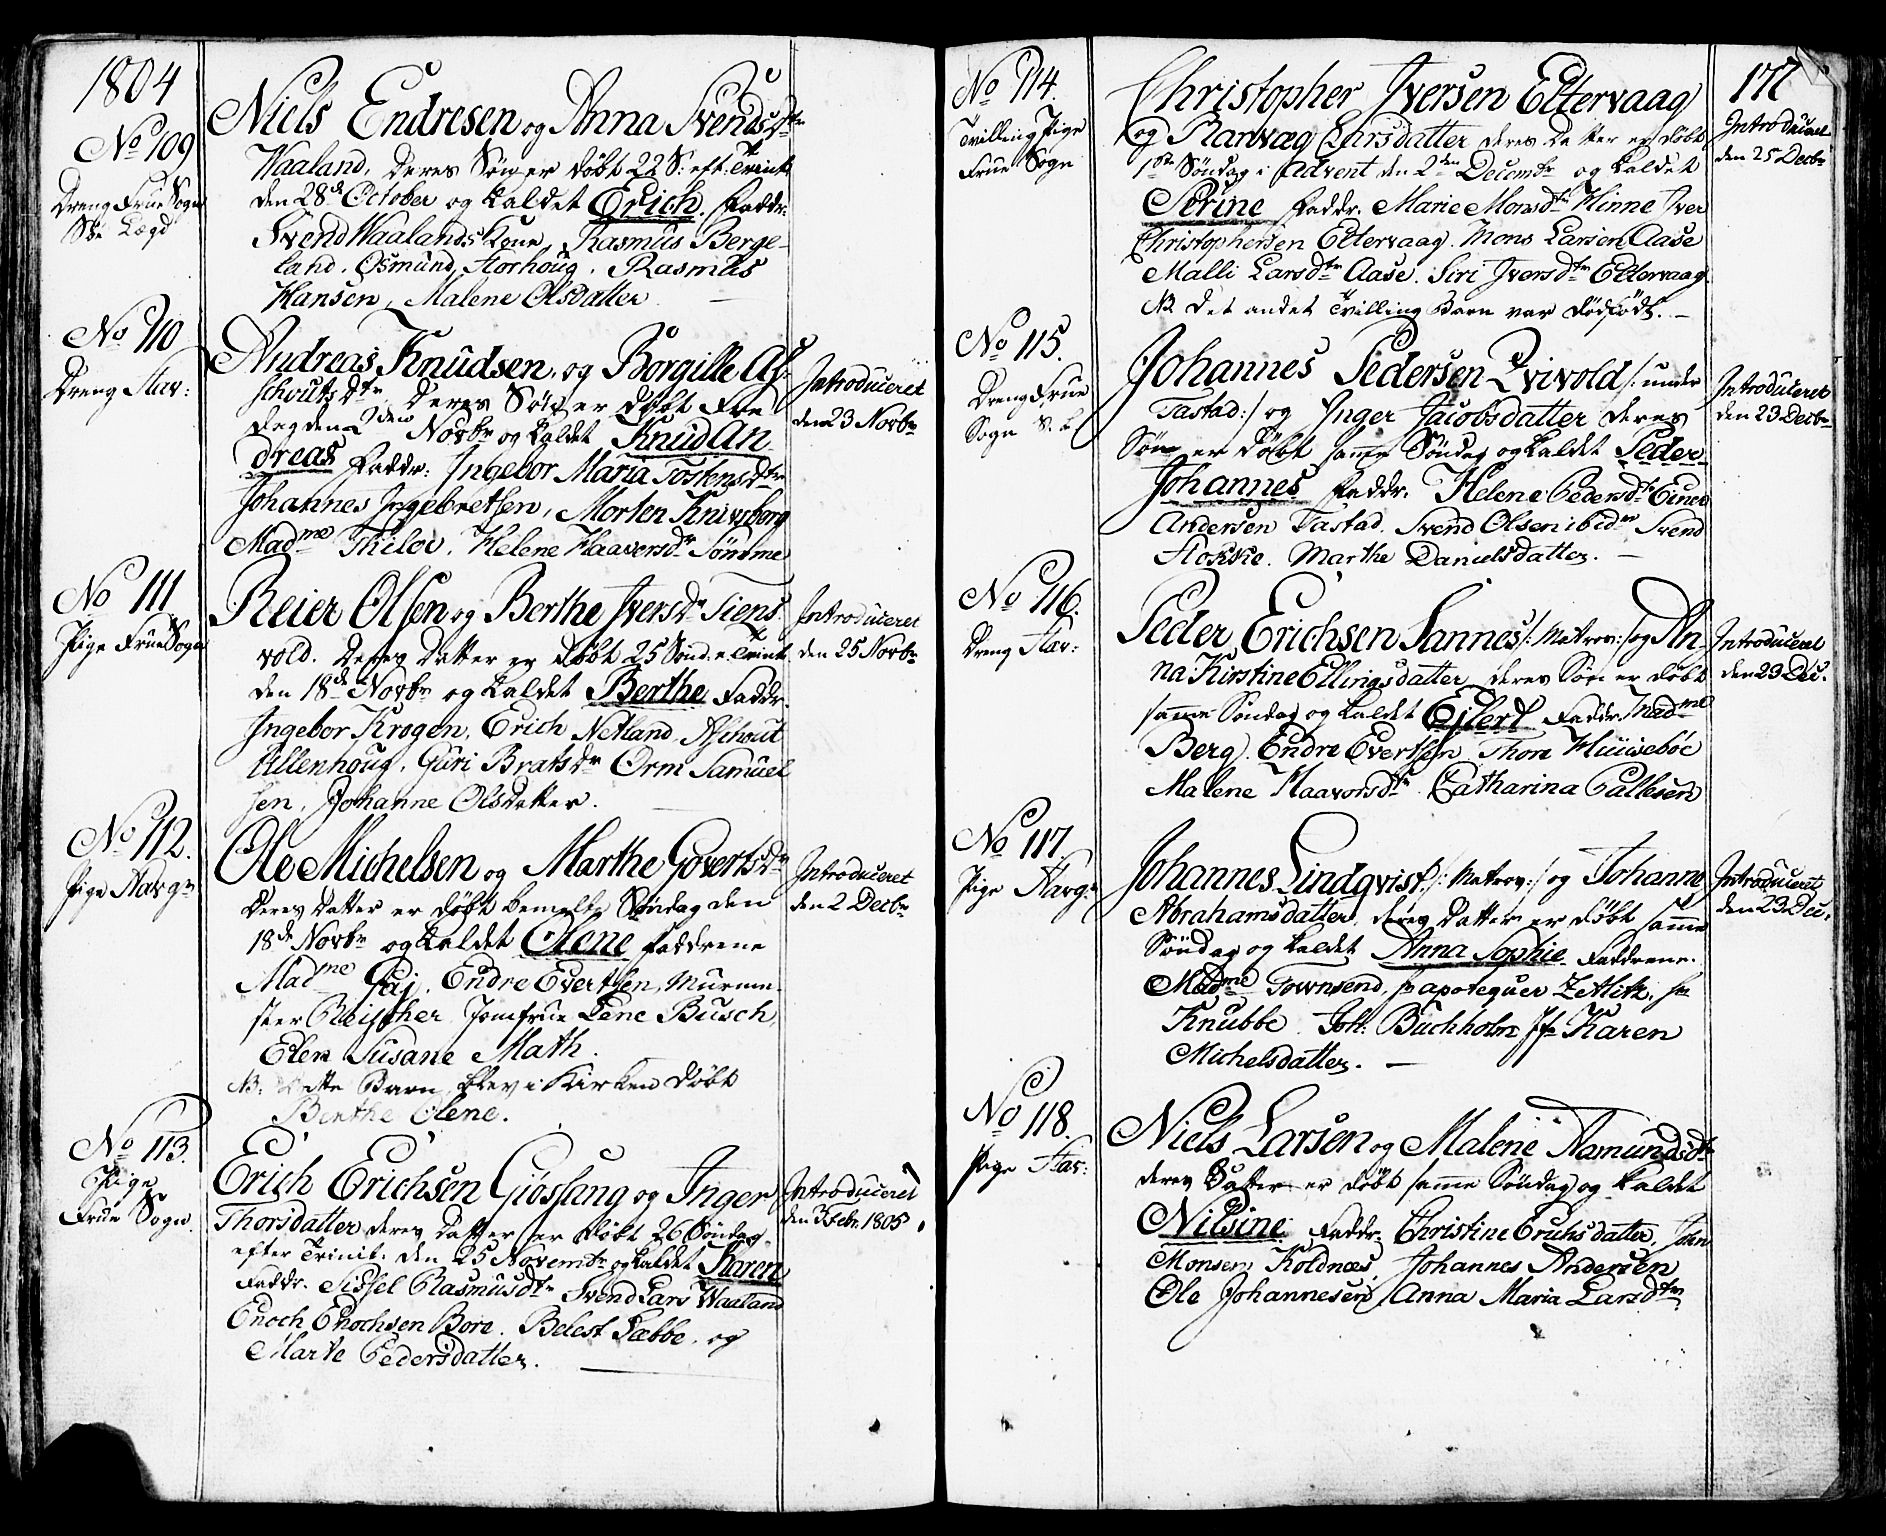 1804
No 109
Dreng Frue Sogn
Niels Endresen og Anna Svendsdtr
Waaland, deres Søn er døbt 22 S: eft: Trinit:
den 28de October og kaldet Erich. Faddr:
Svend Waalands Kone, Rasmus Berge-
land. Osmund Storhoug. Rasmus
Hansen, Malene Olsdatter
No 110
Dreng Stav:
Andreas Knudsen, og Borgille As-
schoutsdtr deres Søn er døbt Fre
dag den 2den Novbr og kaldet Knud An-
dreas Faddr: Ingebor Maria Tostensdtr
Johannes Ingebretsen, Morten Knivsberg
Madme Thiloe. Helene Haavorsdr Sømme
Introduceret
den 23 Novbr
No 111
Pige Frue Sogn
Reier Olsen og Berthe Iversdr Tiens-
vold. Deres Datter er døbt 25 Sønd: e: Trinit
den 18de Novbr og kaldet Berthe Faddr.
Ingebor Krogen, Erich Netland, Aschout
Ullenhoug, Guri Bratsdr Orm Samuel
sen, Johanne Olsdatter.
Introduceret
den 25 Novbr
No 112.
Pige Stavgr
Ole Michelsen og Marthe Govertsdr
deres Datter er døbt bemelte Søndag den
18de Novbr og kaldet Olene Faddrene
Madme Gaj, Endre Evertsen, Murme-
ster Jomfrue Lene Busch,
Elen Susane Math.
NB: dette Barn blev i Kirken døbt
Berthe Olene.
Introduceret
den 2 Decbr
No 113.
Pige
Frue Sogn
Erich Erichsen Giøssang og Inger
Thorsdatter deres Datter er døbt 26 Søndag
efter Trinit: den 25 Novembr og kaldet Karen
Faddr. Sissel Rasmusdtr Svend Lars Waaland
Enoch Enochsen Bore. Belest Sæbbe. og
Marte Pedersdatter.
Introduceret
den 3 Febr. 1805
No 114.
Tvilling Pige
Frue Sogn
Christopher Iversen Eltervaag
og Ranvæg Larsdatter deres Datter er døbt
1ste Søndag i Advent den 2den Decembr og kaldet
Serine Faddr. Marie Monsdtr Hinne Iver
Christophersen Eltervaag. Mons Larsen Aase
Malli Larsdtr Aase. Siri Iversdtr Eltervaag
NB det andet Tvilling Barn var dødfødt.
177
Introduceret
den 25 Decbr
No 115.
Dreng Frue
Sogn
Johannes Pedersen Qvivold /: under
Tastad :/ og Inger Jacobsdatter deres
Søn er døbt samme Søndag og kaldet Peder
Johannes Faddr. Helene Pedersdtr Einer
Andersen Tastad. Svend Olsen ibidm Svend
Stokke. Marthe Danielsdatter.
Introduceret
den 23 Decbr
No 116.
Dreng Stav:
Peder Erichsen Sannes /: Matros :/ og An-
na Kirstine Ellingsdatter deres Søn er døbt
samme Søndag og kaldet Eilert Faddr. Madme
Berg. Endre Evertsen. Thore Huusebøe
Malene Haavorsdtr. Catharina Pallesen
Introduceret
den 23 Dec.
No 117.
Pige Stavgr
Johannes Lindqvist /: Matros :/ og Johanne
Abrahamsdatter, deres Datter er døbt samme
Søndag og kaldet Anna Sophie Faddrene.
Madme Townsend, hr apotequer Zetlitz, hr
Knubbe. Joh: Buchholm Jfr Karen
Michelsdatter.
Introduceret
den 23 Dec.
No 118.
Pige Stav:
Niels Larsen og Malene Aamundsdtr
deres Datter er døbt samme Søndag og kaldet
Nilsine. Faddr. Christine Erichsdatter,
Monsen Koldnæs, Johannes Andersen
Ole Johannesen, Anna Maria Larsdtr